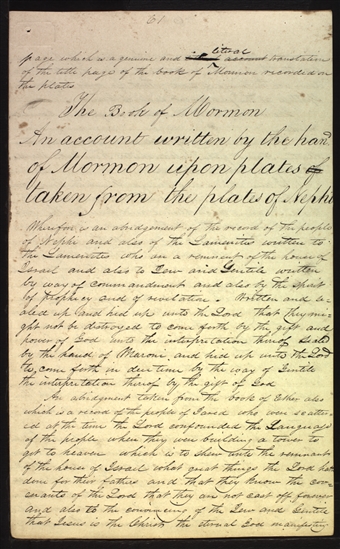 61
page which is a genuine and literal account translation
of the title page of the book of Mormon recorded on
the plates
The Book of Mormon
An account written by the hand
of Mormon upon plates
taken from the plates of Nephi
Wherefore is an abridgement of the record of the people
of Nephi and also of the Lamanites written to
the Lamanites who are a remnant of the house of
Israel and also to Jew and Gentile written
by way of commandment and also by the Spirit
of Prophecy and of revelation. Written and se-
aled up and hid up unto the Lord that they mi-
ght not be distroyed to come forth by the gift and
power of God unto the interpretation thereof sealed
by the hand of Maroni and hid up unto the Lord
to come forth in due time by the way of Gentile
the interpretation thereof by the gift of God
An abridgment taken from the book of Ether also
which is a record of the people of Jared who were scatter-
ed at the time the Lord confounded the Language
of the people when they were building a tower to
get to heaven which is to shew unto the remnant
of the house of Israel what great things the Lord has
done for their fathers and that they know the cov-
enants of the Lord that they are not cast off forever
and also to the convincing of the Jew and Gentile
that Jesus is the Christ the eternal God manifesting